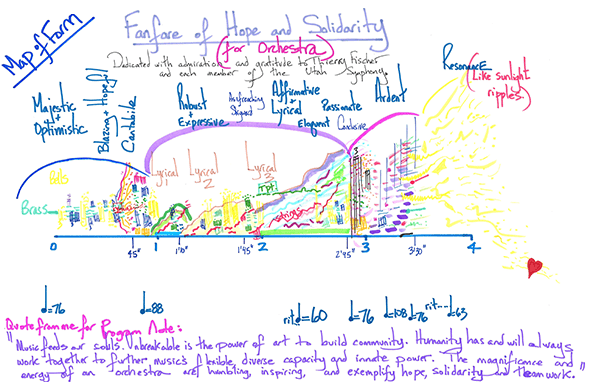 Map of Form
Fanfare of Hope and Solidarity
(for Orchestra)
Dedicated with admiration and gratitude to Thierry Fischer
and each member of the Utah Symphony.
Majestic
+
Optimistic
Blazing + Hopeful
Cantabile
Robust
+
Expressive
Outreaching
Skyward
Affirmative
+
Lyrical
Eloquent
Passionate
Conclusive
Ardent
Resonance
(Like sunlight
ripples)
Bells
Brass
Lyrical
Lyrical
2
Lyrical
3
Tpt
Strings
0
45"
1
1'10"
1'45"
2
2'45"
3
3'30"
4
d=76
d=88
rit d=60
d=76
d=108
d=76
rit---
d=63
Quote from me for Program Note:
"Music feeds our souls. Unbreakable is the power of art to build community. Humanity has and will always
work together to further music's flexible, diverse capacity and innate power. The magnificance and
energy of an orchestra are humbling, inspiring, and exemplify hope, solidarity and teamwork."